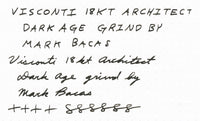 VISCONTI 18KT ARCHITECT
DARK AGE GRIND BY
MARK BACAS
Visconti 18kt Architect
Dark Age grind by
Mark Bacas
++++ 8888888